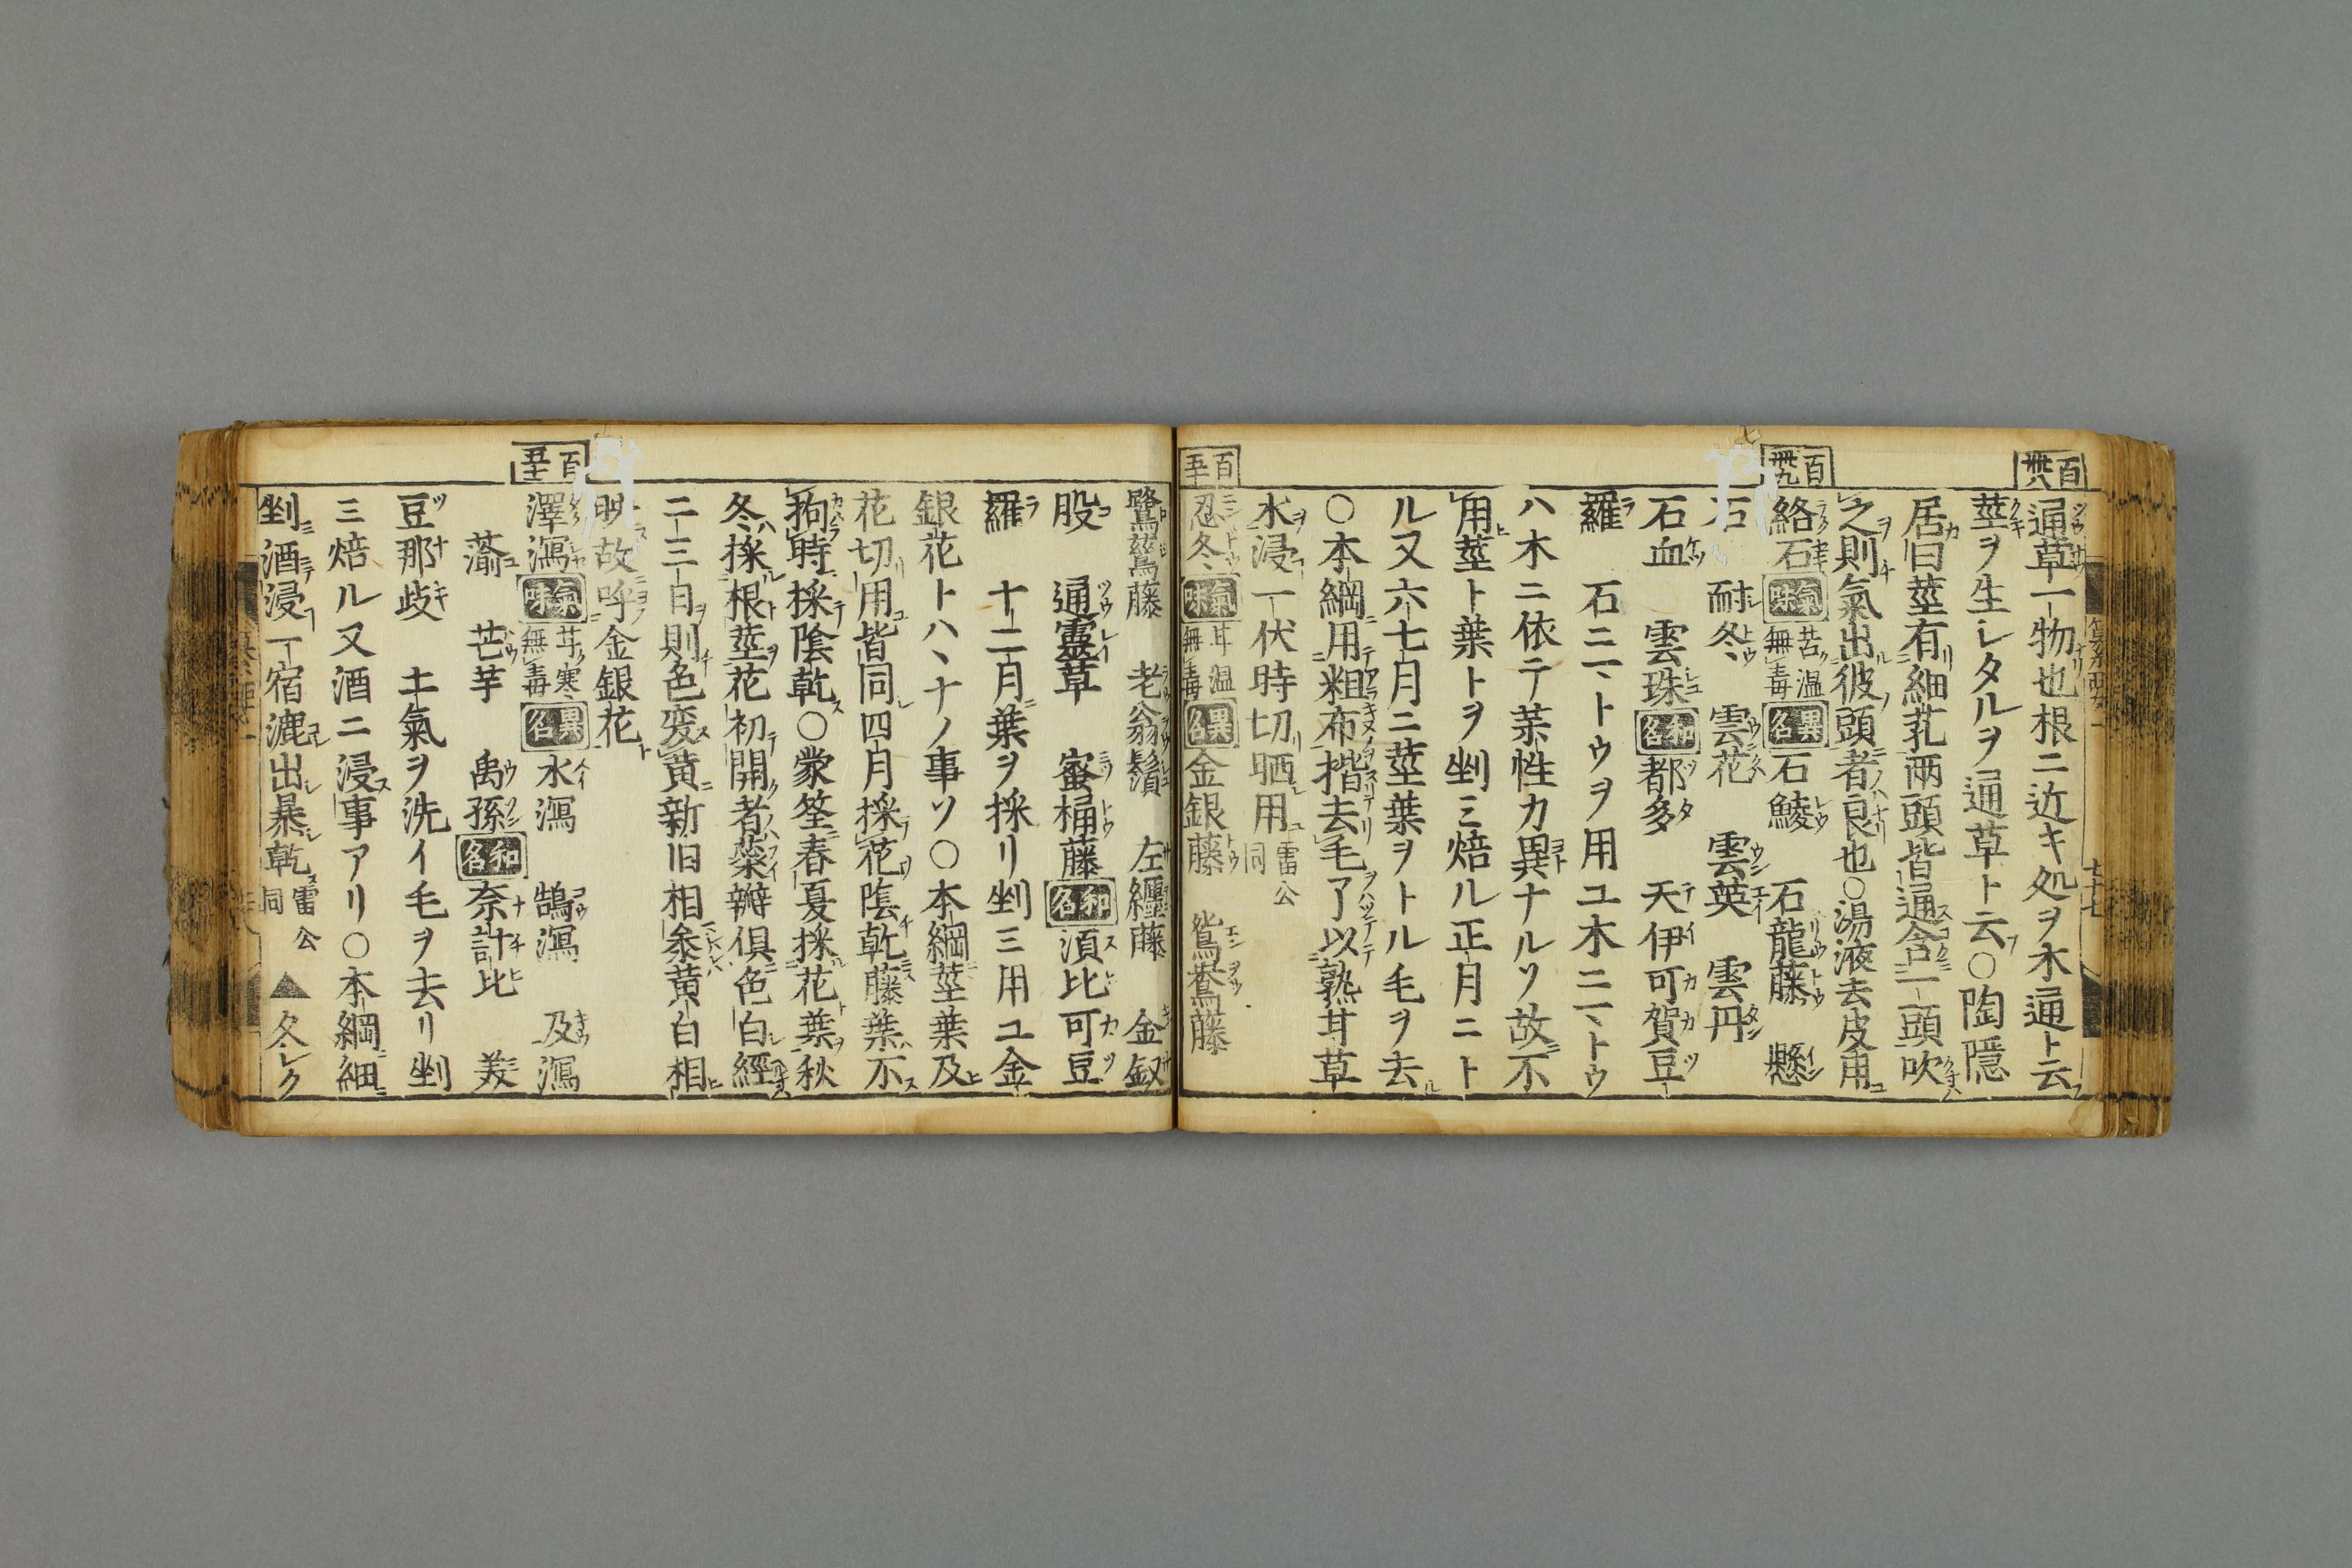 百卅八
通草一物也根ニ近キ処ヲ木通ト云
莖ヲ生シタルヲ通草ト云○陶隠
居曰莖有細孔両頭皆通含一頭吹
之則氣出彼頭者良也○湯液去皮用
百卅九
絡石 氣味 苦温無毒 異名 石鯪 石龍藤 懸
石 耐冬 雲花 雲英 雲丹
石血 雲珠 和名 都多 天伊可賀豆
羅 石ニ一ハトウヲ用ユ木ニ一ハトウ
ハ木ニ依テ茶性カ異ナルソ故不
用莖ト葉トヲ剉ミ焙ル正月ニト
ル又六七月ニ莖葉ヲトル毛ヲ去
○本綱用粗布揩去毛了以熟甘草
水浸一伏時切晒用 雷公同
百五十
忍冬 氣味 甘温無毒 異名 金銀藤 鴛鴦藤
鷺鷥藤 老翁鬚 左纏藤 金釵
股 通靈草 蜜桶藤 和名 須比可豆
羅 十二月葉ヲ採リ剉三用ユ金
銀花トハ、ナノ事ソ○本綱莖葉及
花切用皆同四月採花陰乾藤葉不
拘時採陰乾○蒙筌春夏採花葉秋
冬採根莖花初開者蘂瓣俱色白經
二三日則色変黄新旧相参黄白相
映故呼金銀花
澤瀉 氣味 甘寒無毒 異名 水瀉 鵠瀉 及瀉
蕍 芒芋 禹孫 和名 奈計比 羙
豆那歧 土氣ヲ洗イ毛ヲ去リ剉
三焙ル又酒ニ浸事アリ○本綱細
剉酒浸一宿漉出暴乾 雷公同 ▲久シク